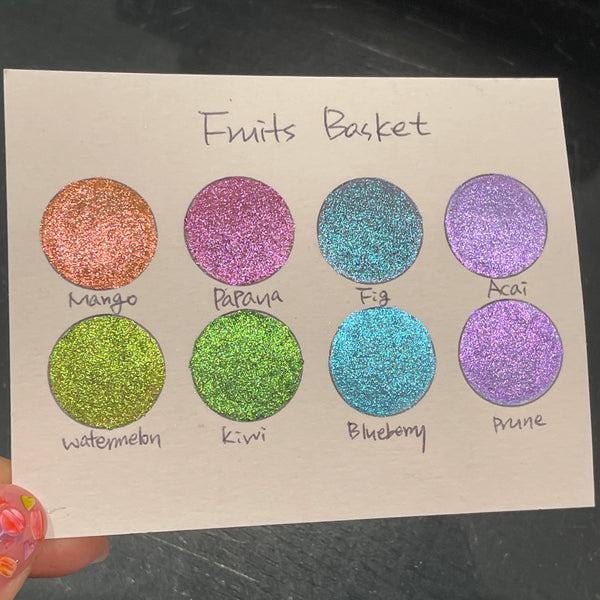 Fruits Basket
Mango Papaya Fig Acai
Watermelon Kiwi Blueberry Prune